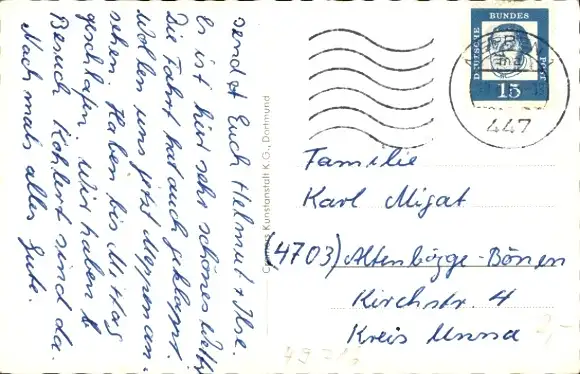 send et Euch Helmut + Ilse.
Es ist hier sehr schönes Wetter
Die Fahrt hat auch geklappt.
Wollen uns jetzt Meppen an-
sehen. Haben bis Mittag
geschlafen. Wir haben
Besuch Kohlert sind da.
Nach mals alles Gute.
Kunstanstalt K.G., Dortmund
DEUTSCHE BUNDES POST
15
447
Familie
Karl Migat
(4703) Altenbögge-Bönen
Kirchstr. 4
Kreis Unna
2,-